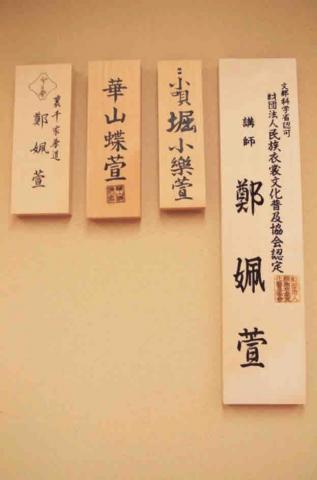 文部科学省認可
財団法人民族衣裳文化普及協会認定
講師
鄭姵萱
小唄
堀小樂萱
華山蝶萱
裏千家茶道
鄭姵萱